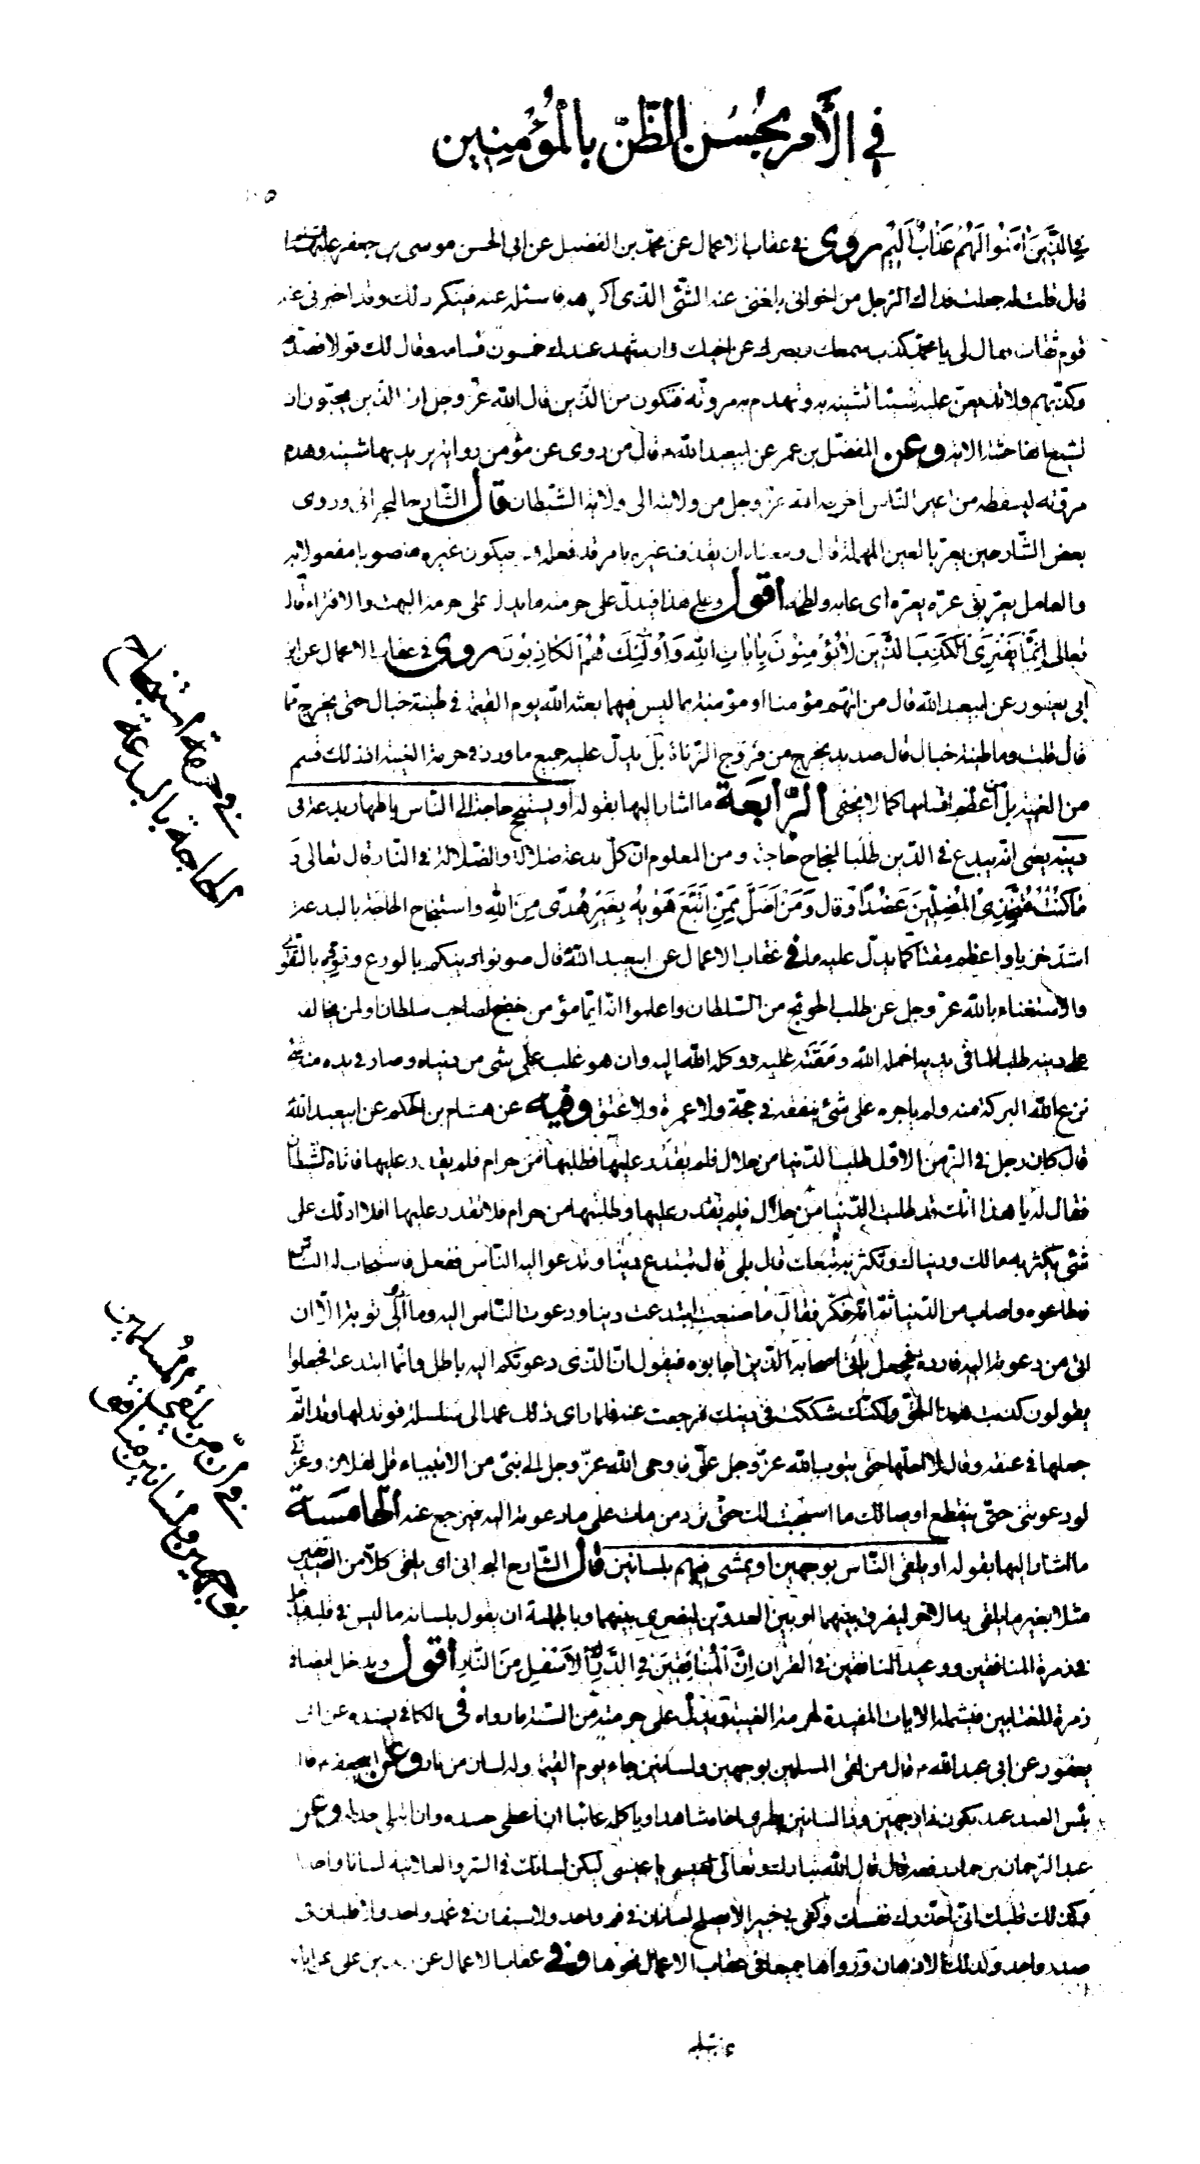 في الأمر بحُسن الظّنّ بالمُؤمنين
في الَّذينَ اٰمَنُوا لَهُمْ عَذابٌ اَليمٌ روى في عقاب الاعمال عن محمّد بن الفضيل عن ابى الحسن موسى بن جعفر عليهما
قال قلت له جعلت فداك الرّجل من اخوانى بلغنى عنه الشّئ الّذى اكرهه فاسئله عنه فينكر ذلك وقد اخبرنى عنه
قوم ثقات فقال لى يا محمّد كذّب سمعك وبصرك عن اخيك وان شهد عندك خمسون قسامة وقال لك قولا فصدّقه
وكذّبهم ولا تذيعنّ عليه شيئا تشينه به وتهدم به مروّته فتكون من الّذين قال الله عزّ وجل ان الّذين يحبّون ان
تشيع الفاحشة الاية وعن المفضّل بن عمر عن ابيعبد الله قال من روى عن مؤمن رواية يريد بها شينه وهدم
مروّته ليسقطه من اعين النّاس اخرجه الله عزّ وجل من ولايته الى ولاية الشّيطان قال الشّارح البحرانى وروى
بعض الشّارحين يعرّ بالعين المهملة قال ومعناه ان يقذف غيره بامر قد فعله هو فيكون غيره منصوبا مفعولا به
والعامل يعرّ يق عرّه يعرّه اى عابه ولطخه اقول وعلى هذا فيدلّ على حرمته ما يدلّ على حرمة البهت والافتراء قال
تعالى اِنَّمَا يَفْتَرِى الْكَذِبَ الَّذينَ لاٰ يُؤْمِنُونَ بِاٰيٰاتِ اللهِ وَاُولٰٓئِكَ هُمُ الْكٰاذِبُونَ روى في عقاب الاعمال عن ابن
ابى يعفور عن ابيعبد الله قال من اتّهم مؤمنا او مؤمنة بما ليس فيهما بعثه الله يوم القيمة في طينة خبال حتى يخرج ممّا
قال قلت وما طينة خبال قال صديد يخرج من فروج الزّناة بل يدلّ عليه جميع ما ورد في حرمة الغيبة اذ ذلك قسم
من الغيبة بل من اعظم اقسامها كما لا يخفى الرّابعة ما اشار اليها بقوله او يستنجح حاجة الى النّاس باظهار بدعة في
دينه يعنى انّه يبدع في الدّين طلبا لنجاح حاجة ومن المعلوم ان كلّ بدعة ضلالة والضّلالة في النّار قال تعالى وَ
مٰا كُنْتُ مُتَّخِذَ الْمُضِلّينَ عَضُدًا وقال وَمَنْ اَضَلُّ مِمَّنِ اتَّبَعَ هَوٰيهُ بِغَيْرِ هُدًى مِنَ اللهِ واستنجاح الحاجة بالبدعة
اشدّ خزيا واعظم مقتا كما يدلّ عليه ما في عقاب الاعمال عن ابيعبد الله قال صونوا دينكم بالورع وقوّوه بالتّقوى
والاستغناء بالله عزّ وجل عن طلب الحوائج من السّلطان واعلموا انّه ايّما مؤمن خضع لصاحب سلطان او لمن يخالفه
على دينه طلبا لما في يديه اخمله الله ومَقَتَه عليه ووكله الله اليه وان هو غلب على شئ من دنياه وصار في يده منه شئ
نزع الله البركة منه ولم ياجره على شئ ينفقه في حجّة ولا عمرة ولا عتق وفيه عن هشام بن الحكم عن ابيعبد الله
قال كان رجل في الزّمن الاوّل طلب الدّنيا من حلال فلم يقدر عليها فطلبها من حرام فلم يقدر عليها فاتاه الشّيطان
فقال له يا هذا انّك قد طلبت الدّنيا من حلال فلم تقدر عليها وطلبتها من حرام فلا تقدر عليها افلا ادلّك على
شئ يكثر به مالك ودنياك وتكثر به تبعاتك قال بلى قال تبتدع دينا وتدعو اليه النّاس ففعل فاستجاب له النّاس
فطاعوه واصاب من الدّنيا ثمّ انّه فكّر فقال ما صنعت ابتدعت دينا ودعوت النّاس اليه وما ارى لى توبة الّا ان
اتى من دعوته اليه فارده فجعل ياتى اصحابه الّذين اجابوه فيقول انّ الّذى دعوتكم اليه باطل وانّما ابتدعته فجعلوا
يقولون كذبت هو الحقّ ولكنّك شككت في دينك فرجعت عنه فلما راى ذلك عمد الى سلسلة فوتد لها وتدا ثمّ
جعلها في عنقه وقال لا احلّها حتى يتوب الله عزّ وجل علىّ فاوحى الله عزّ وجل الى نبىّ من الانبياء قل لفلان وعزّتى
لو دعوتنى حتّى ينقطع اوصالك ما استجبت لك حتى تردّ من مات على ما دعوته اليه فيرجع عنه الخامسة
ما اشار اليها بقوله او يلقى النّاس بوجهين او يمشى فيهم بلسانين قال الشّارح البحرانى اى يلقى كلّا من الصّديقين
مثلا بغير ما يلقى به الاخر ليفرق بينهما او بين العدوّين ليضرى بينهما وبالجملة ان يقول بلسانه ما ليس في قلبه فيدخل
في زمرة المنافقين ووعيد المنافقين في القران اِنَّ الْمُنافِقينَ فِي الدَّرْكِ الْاَسْفَلِ مِنَ النّارِ اقول ويدخل ايضا في
زمرة المغتابين فيشمله الايات المفيدة لحرمة الغيبة ويدلّ على حرمته من السّنة ما رواه في الكافى بسنده عن ابى
يعفور عن ابى عبد الله قال من لقى المسلمين بوجهين ولسانين جاء يوم القيمة وله لسان من نار وعن ابيجعفر قال
بئس العبد عبد يكون ذا وجهين وذا لسانين يطرى اخاه شاهدا وياكله غائبا ان اعطى حسده وان ابتلى خذله وعن
عبد الرّحمان بن حماد رفعه قال قال الله تبارك وتعالى لعيسى يا عيسى ليكن لسانك في السّر والعلانية لسانا واحدا
وكذلك قلبك انّى احذّرك نفسك وكفى بى خبيرا لا يصلح لسانان في فم واحد ولا سيفان في غمد واحد ولا قلبان في
صدر واحد وكذلك الاذهان ورواها جميعا في عقاب الاعمال نحوها وفي عقاب الاعمال عن زيد بن على عن ابائه
في حرمة استنجاح
الحاجة بالبدعة
في ذمّ من يلقى المُسلمين
بوجهين ولسانين